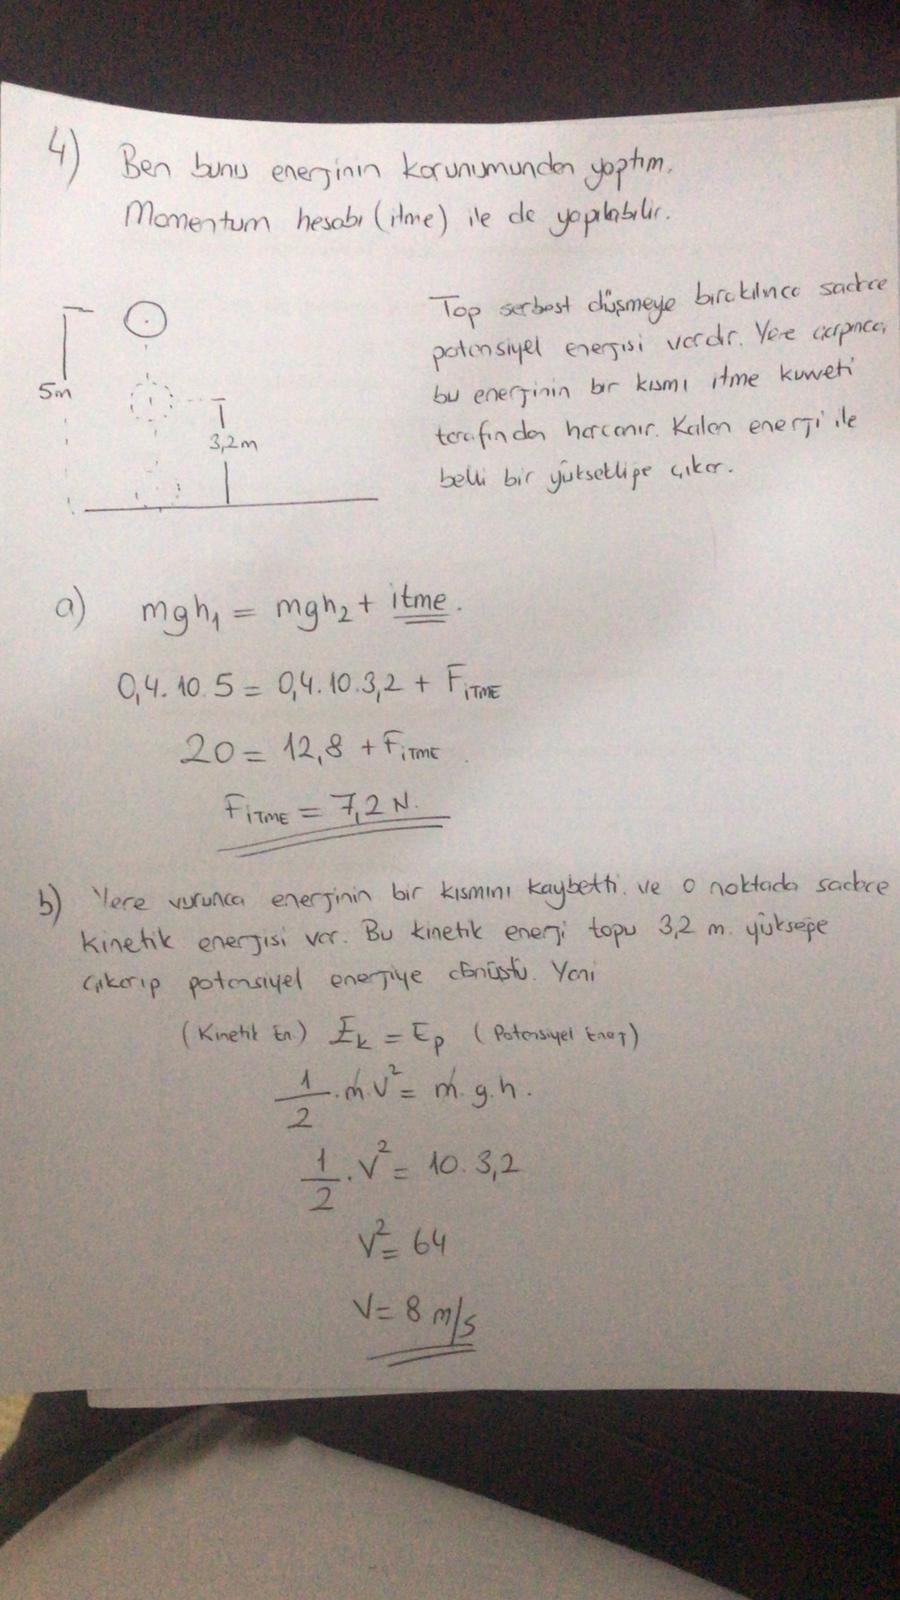 4) Ben bunu enerjinin korunumundan yaptım.
Momentum hesabı (itme) ile de yapılabilir.
5m
3,2m
Top serbest düşmeye bırakılınca sadece
potansiyel enerjisi vardır. Yere çarpınca
bu enerjinin bir kısmı itme kuvveti
tarafından harcanır. Kalan enerji ile
belli bir yüksekliğe çıkar.
a) mgh₁ = mgh₂ + itme.
0,4.10.5 = 0,4.10.3,2 + FİTME
20 = 12,8 + FİTME
FİTME = 7,2 N.
b) Yere vurunca enerjinin bir kısmını kaybetti. ve o noktada sadece
kinetik enerjisi var. Bu kinetik enerji topu 3,2 m. yükseğe
çıkarıp potansiyel enerjiye dönüştü. Yani
(Kinetik En.) Ek = Ep (Potansiyel Enerj)
1/2 . m.v² = m.g.h.
1/2 . v² = 10.3,2
v² = 64
v = 8 m/s